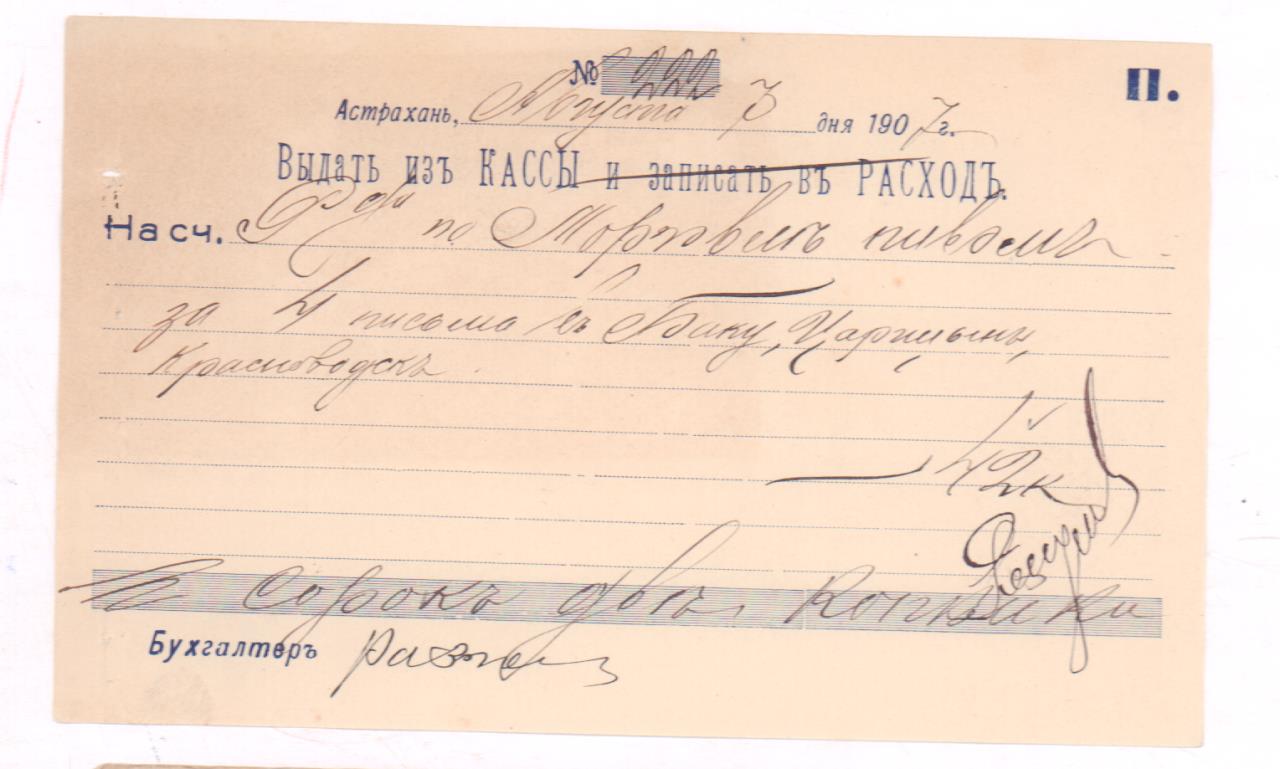 № 222
П.
Астрахань, Августа 7 дня 1907 г.
Выдать изъ КАССЫ и записать въ РАСХОДЪ.
На сч. по Торговлѣ пивомъ
за 4 письма въ Баку, Царицынъ,
Красноводскъ.
42к
Сорокъ двѣ копѣйки
Бухгалтеръ